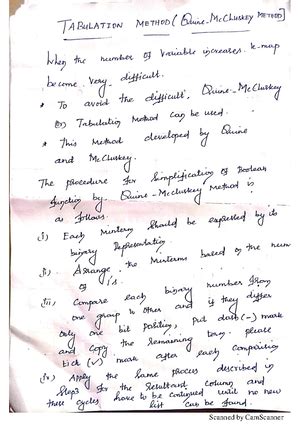 TABULATION METHOD (Quine-McCluskey METHOD)
When the number of variable increases. k-map
become very difficult.
* To avoid the difficult, Quine-McCluskey
(or) Tabulation Method can be used.
* This Method developed by Quine
and McCluskey.
The procedure for Simplification of Boolean
function by. Quine-McCluskey Method is
as follows.
(i) Each Minterm Should be expressed by its
binary Representation.
ii, Arrange the Minterms based on the num
of 1's.
iii, Compare each binary number from
one group to other and if they differ
only one bit position, put dash (-) mark
and copy the remaining term. place
tick (✓) mark after each comparision
iv Apply the same process described in
steps for the Resultant column and
these cycles have to be continued until no new
list can be found.
Scanned by CamScanner